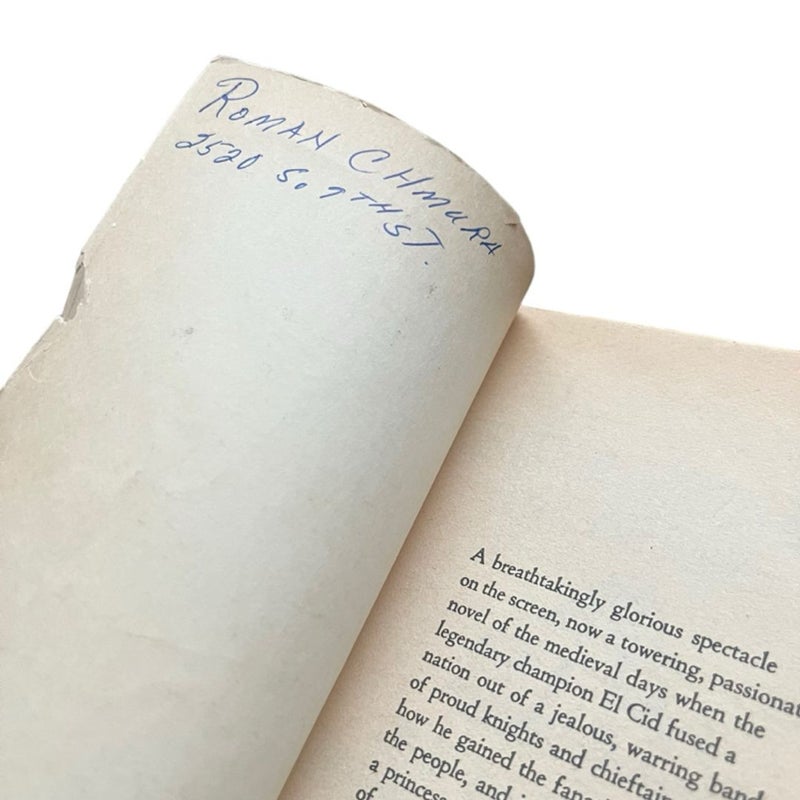 ROMAN CHMURA
2520 So 7TH ST.
A breathtakingly glorious spectacle
on the screen, now a towering, passionat
novel of the medieval days when the
legendary champion El Cid fused a
nation out of a jealous, warring band
of proud knights and chieftain
how he gained the fana
the people, and
a princess
of